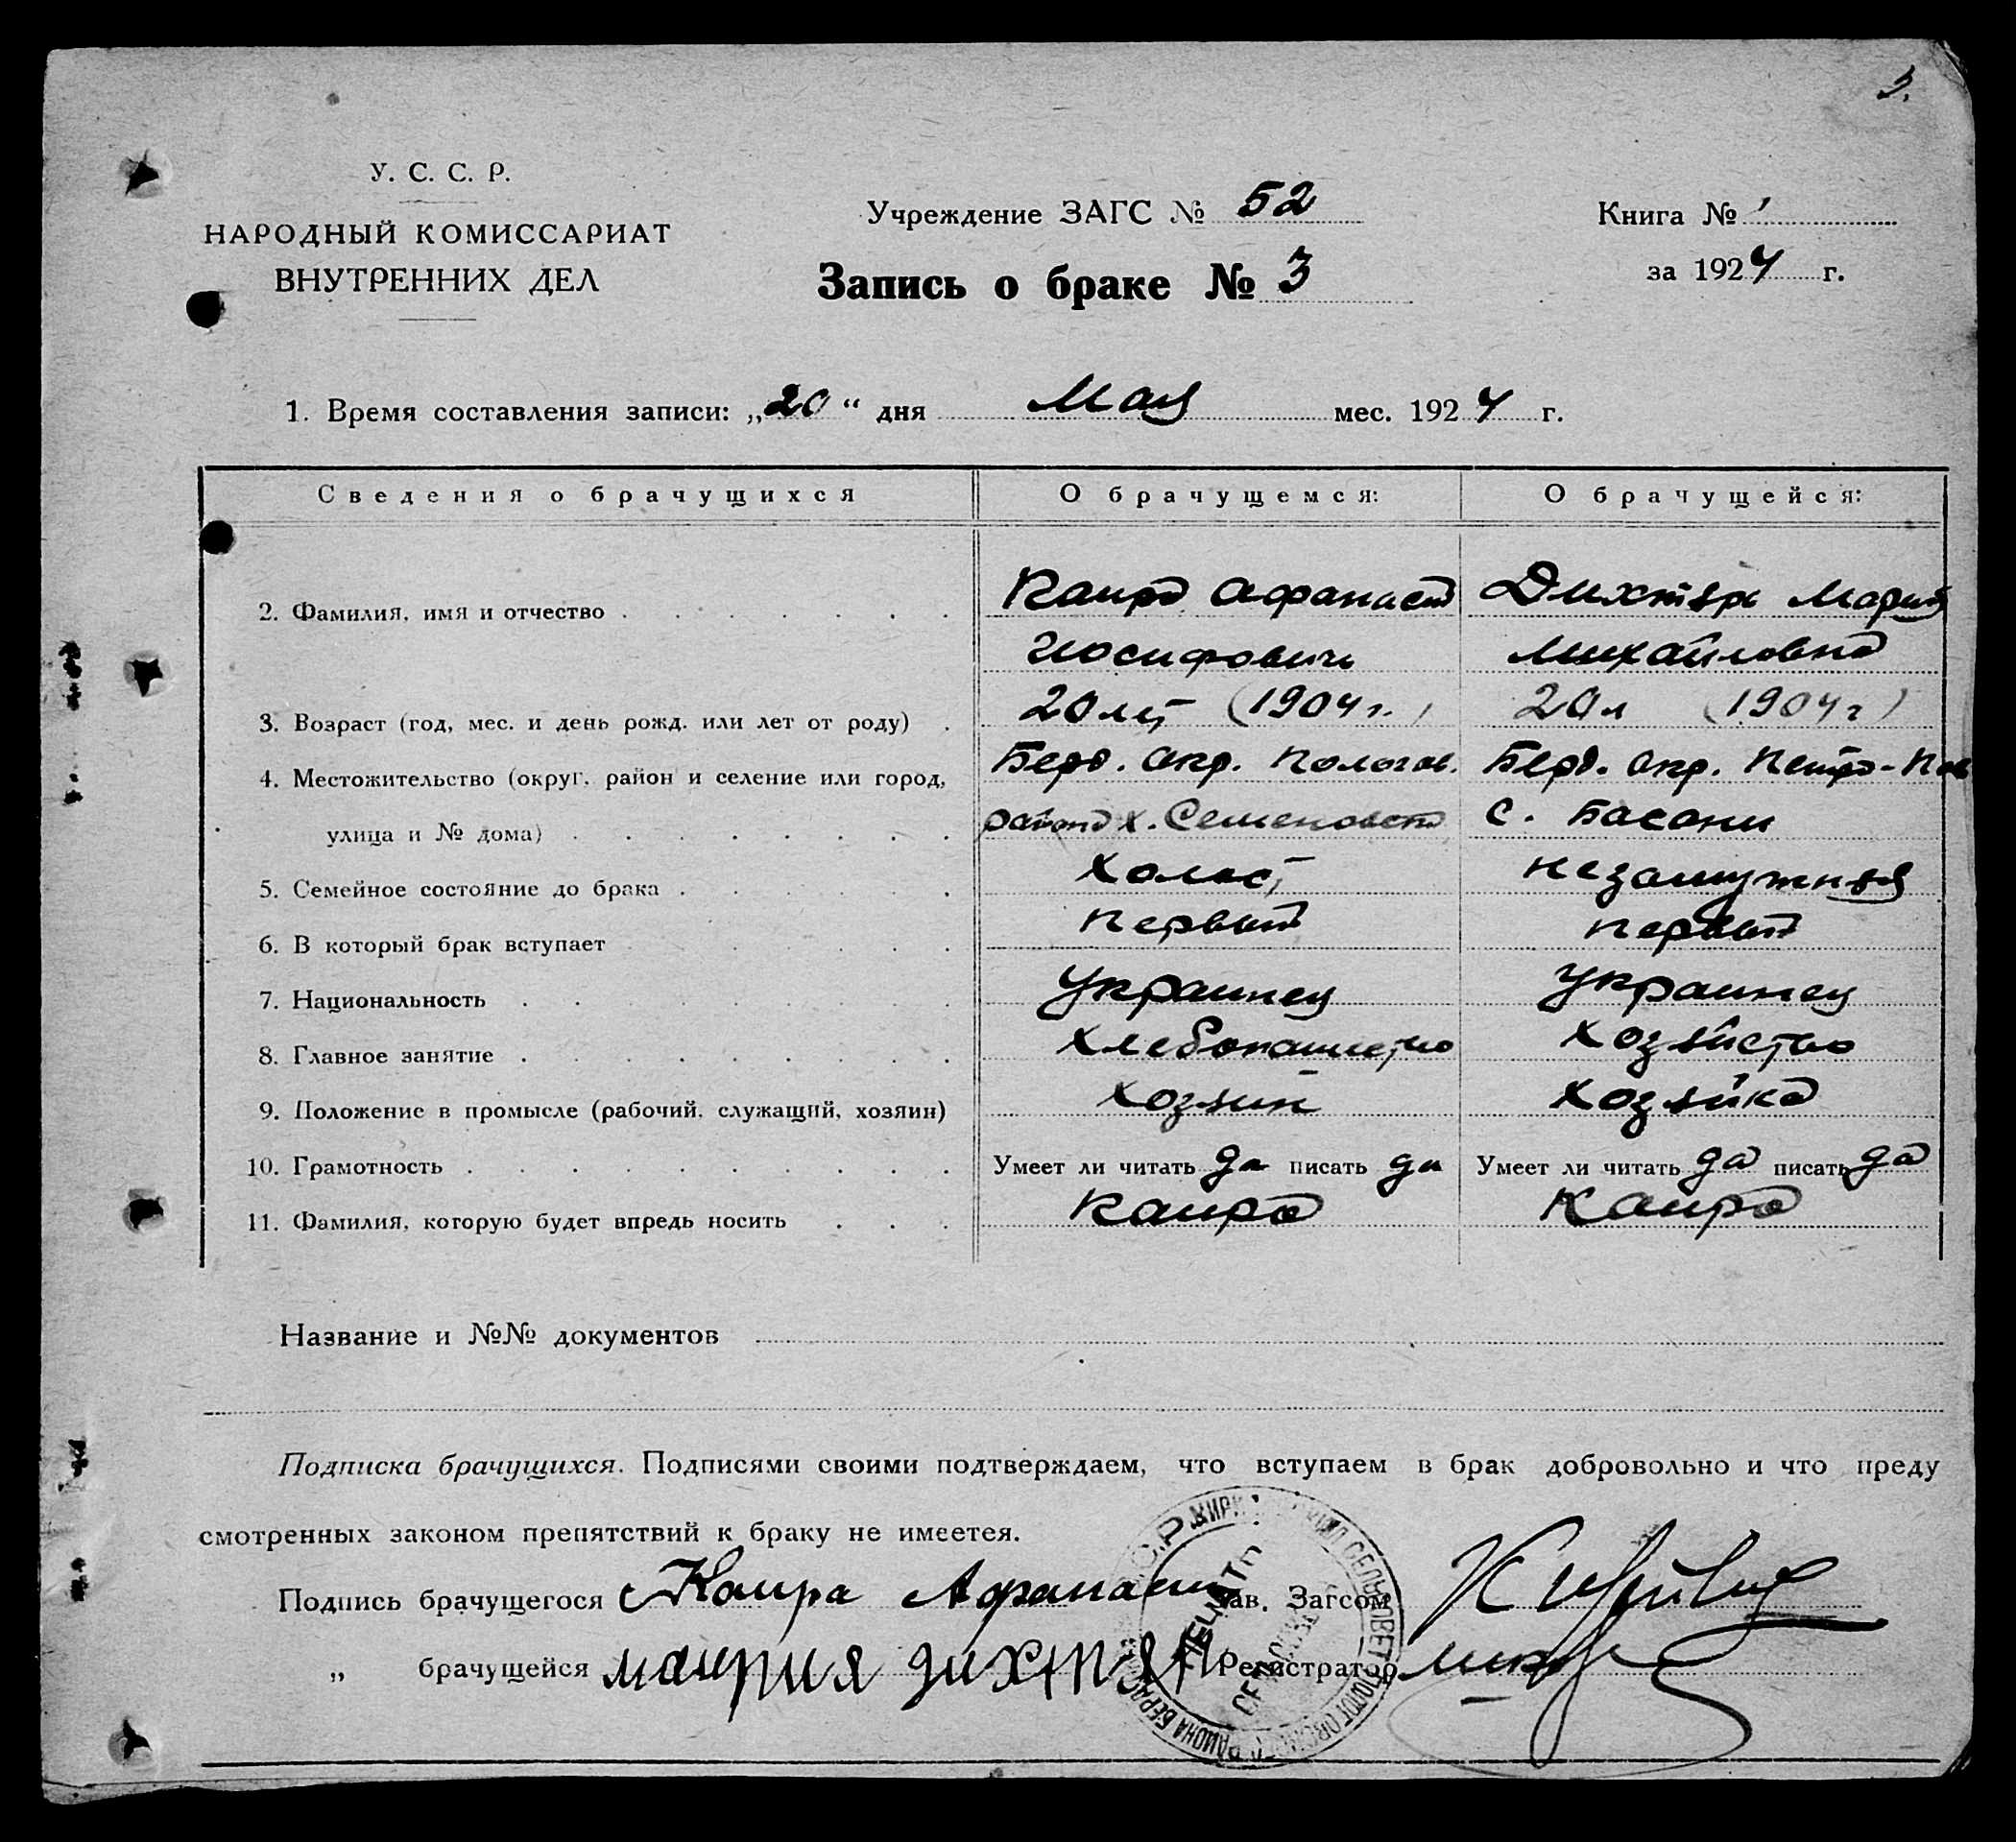 3.
У. С. С. Р.
НАРОДНЫЙ КОМИССАРИАТ
ВНУТРЕННИХ ДЕЛ
Учреждение ЗАГС № 52
Запись о браке № 3
Книга № 1
за 1924 г.
1. Время составления записи: „20“ дня Мая мес. 1924 г.
Сведения о брачущихся О брачущемся: О брачущейся:
2. Фамилия, имя и отчество Каира Афанасий Дихтярь Мария
Иосифович Михайловна
3. Возраст (год, мес. и день рожд. или лет от роду) 20 лет (1904 г.) 20 л (1904 г)
4. Местожительство (округ, район и селение или город, Берд. Окр. Пологов. Берд. Окр. Петро-Пав
улица и № дома) района х. Семеновка с. Басани
5. Семейное состояние до брака холост незамужняя
6. В который брак вступает первый первый
7. Национальность Украинец Украинец
8. Главное занятие хлебопашество хозяйство
9. Положение в промысле (рабочий, служащий, хозяин) хозяин хозяйка
10. Грамотность Умеет ли читать да писать да Умеет ли читать да писать да
11. Фамилия, которую будет впредь носить Каира Каира
Название и №№ документов
Подписка брачущихся. Подписями своими подтверждаем, что вступаем в брак добровольно и что преду
смотренных законом препятствий к браку не имеется.
Подпись брачущегося Каира Афанасий Зав. Загсом
„ брачущейся Мария Дихтяр Регистратор
ПЕЧАТЬ